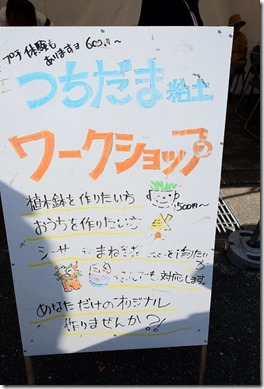 プチ体験も
ありますヨ 600円～
つちだま粘土
ワークショップ
植木鉢を作りたい方
1500円～
おうちを作りたい方
シーサー まねきねこ を作りたい方
でも対応します。
あなただけのオリジナル
作りませんか?!